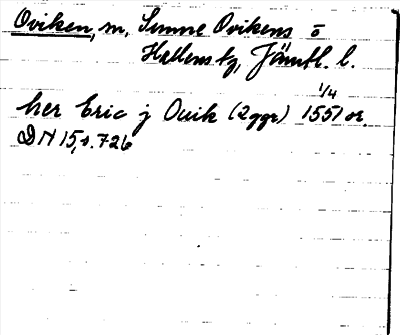 Oviken, m, Sunne Ovikens o
Hallens tg, Jämtl. l.
her Eric j Ouik (2ggr) 1/4 1551 or.
DN 15, s. 726